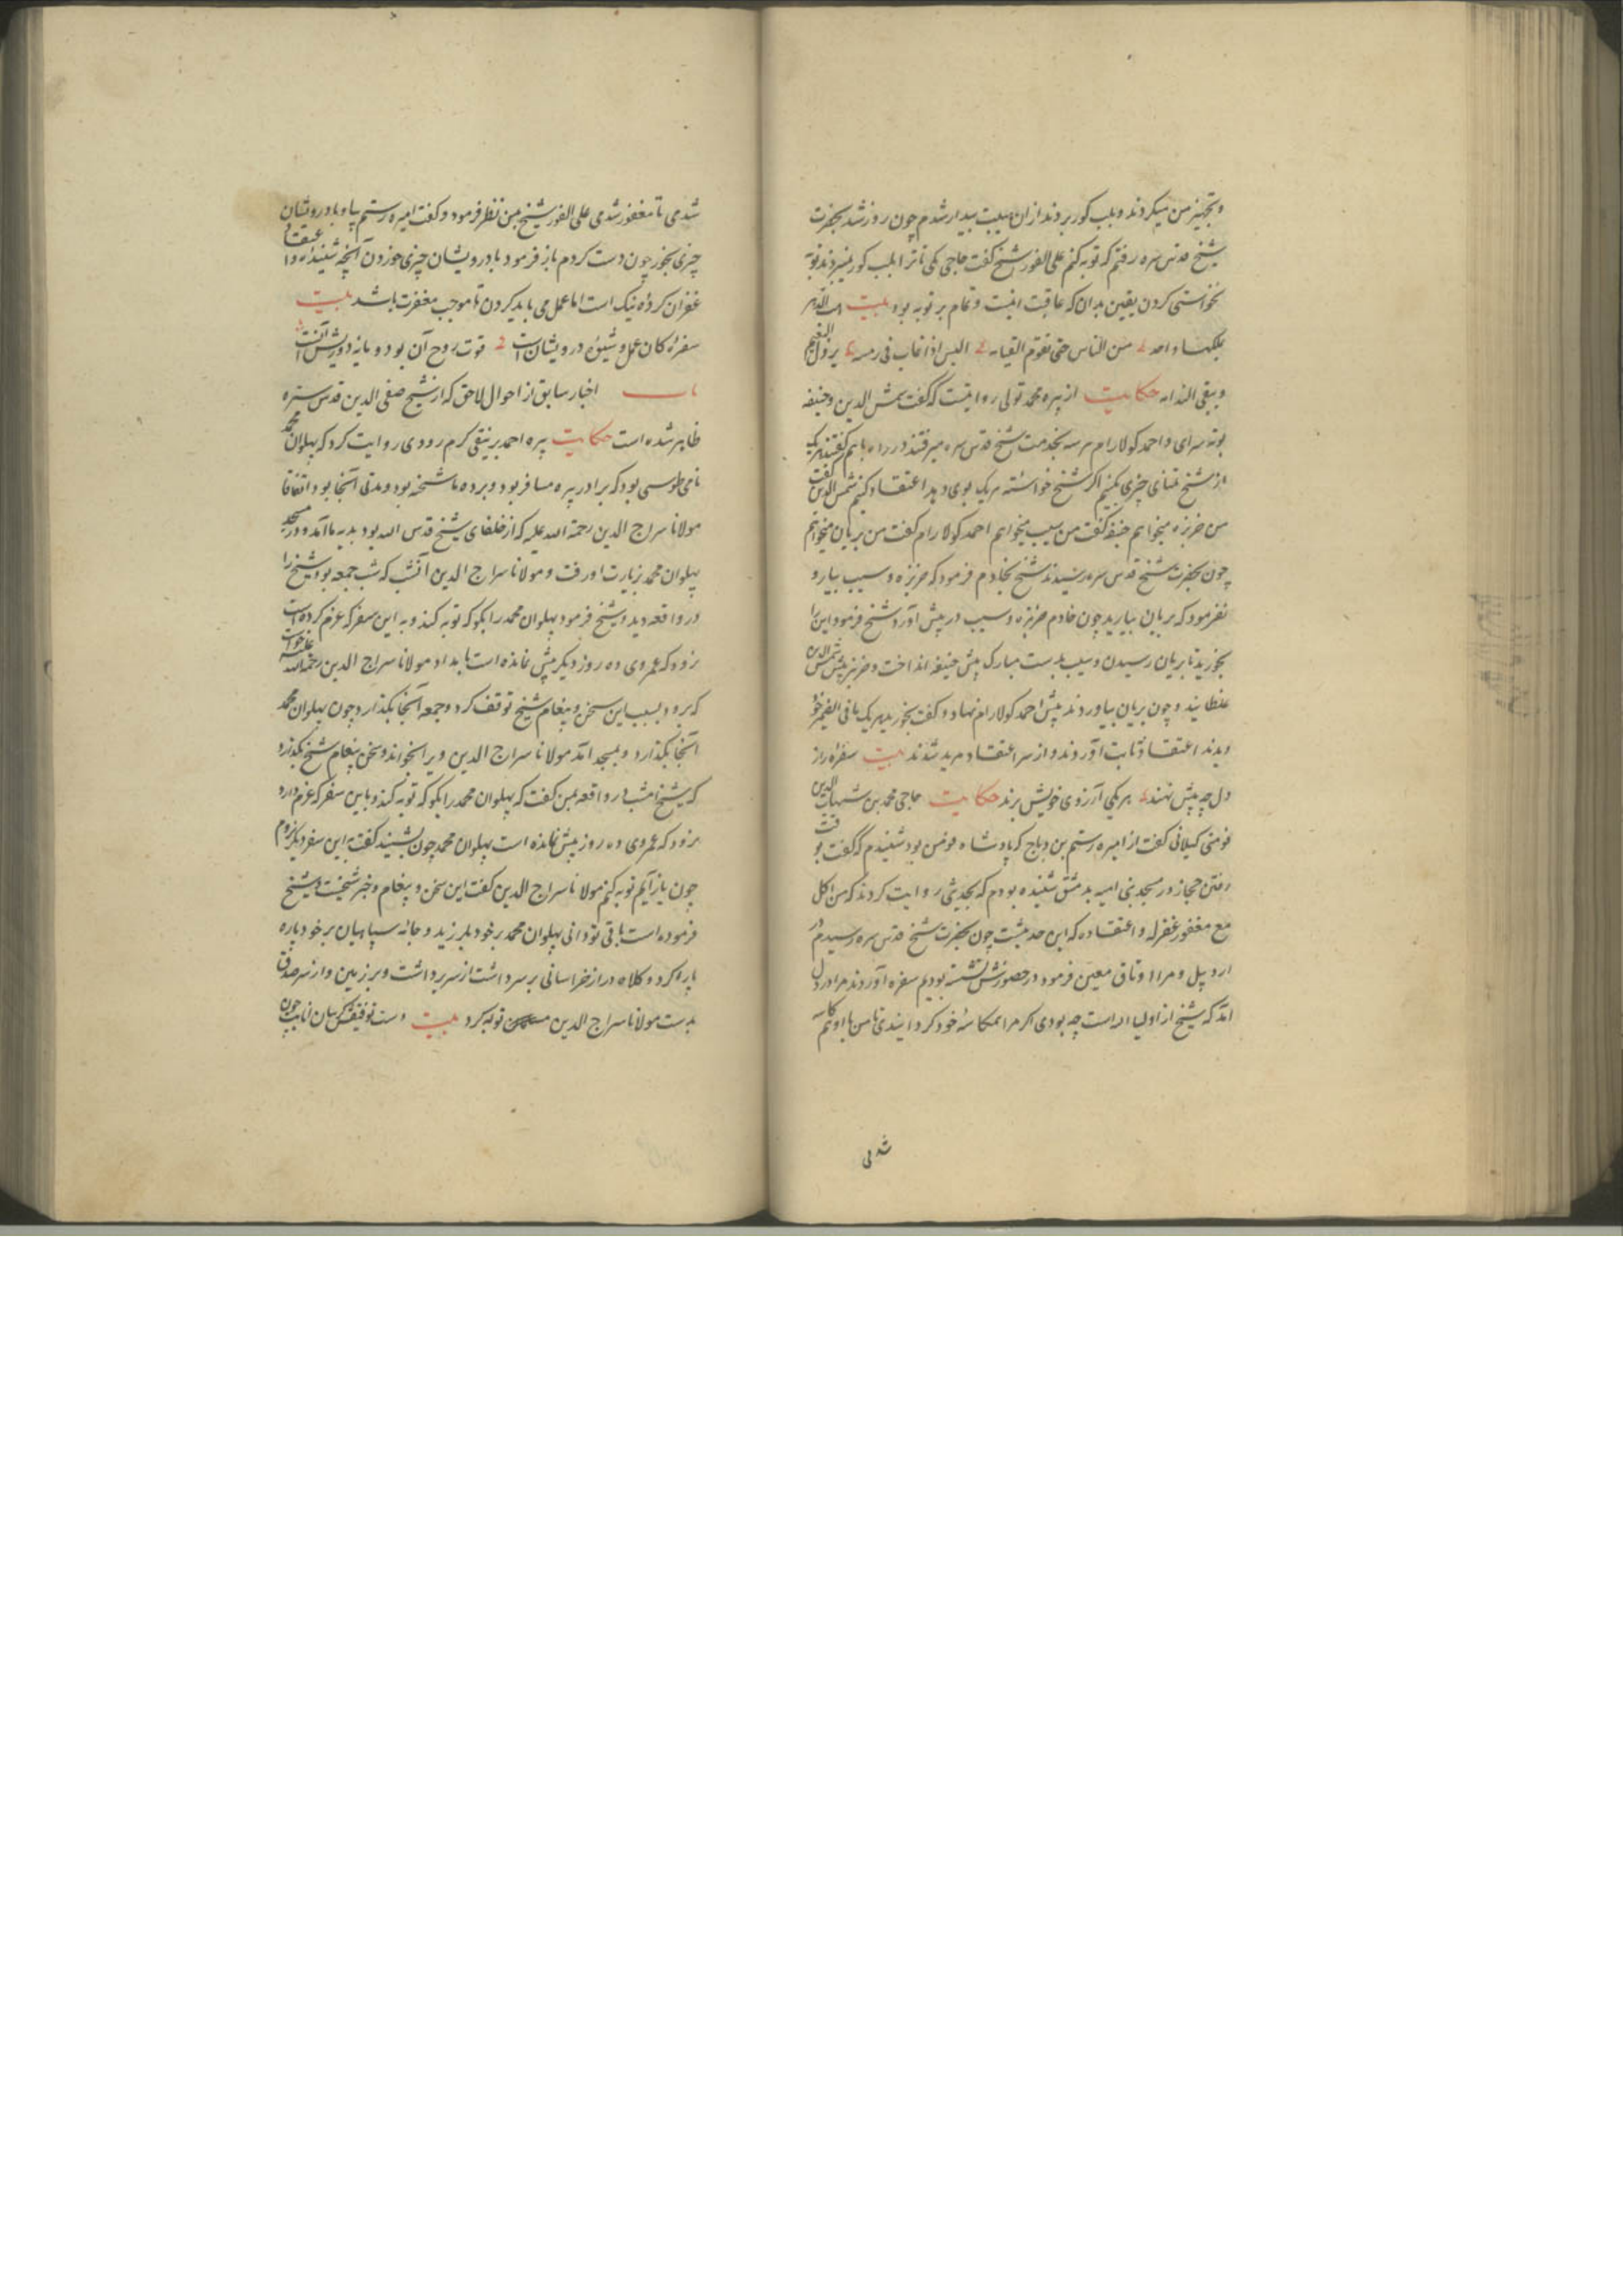 و تجهیز من میکردند و بلب کور بردند از ان هیبت بیدار شدم چون روز شد بحضرت
شیخ قدس سره رفتم که توبه کنم علی الفور شیخ کفت حاجی مکی تا ترا بلب کور نمیبردند توبه
نخواستی کردن یقین بدان که عاقبت اینست و تمام بر توبه بود بیت
من الناس حتی تقوم القیامه الیس اذا غاب فی رمسه یزول النعیم
و یبقی الندامه حکایت از پیره محمد تولی روایتست که کفت شمس الدین و حنیفه
سرای و احمد کولارام هر سه بخدمت شیخ قدس سره میرفتند در راه با هم کفتند هر یک
از شیخ تمنای چیزی بکنیم اکر شیخ خواسته هر یک بوی دهد اعتقاد کنیم شمس الدین کفت
من خربزه میخواهم حنیفه کفت من سیب میخواهم احمد کولارام کفت من بریان میخواهم
چون بحضرت شیخ قدس سره رسیدند شیخ بخادم فرمود که خربزه و سیب بیار و
بفرمود که بریان بیارید چون خادم خربزه و سیب در پیش آورد شیخ فرمود این را
بخورید تا بریان رسیدن و سیب بدست مبارک پیش حنیفه انداخت و خربزه پیش شمس الدین
غلطانید و چون بریان بیاوردند پیش احمد کولارام نهاد و کفت بخورید هر یک ما فی الضمیر خود
دیدند اعتقاد ثابت آوردند و از سر اعتقاد مرید شدند بیت سفره راز
دل چه پیش نهند هر یکی آرزوی خویش برند حکایت حاجی محمد بن شهاب الدین
فومنی کیلانی کفت از امیره رستم بن دباج که پادشاه فومن بود شنیدم که کفت بوقت
رفتن حجاز در مسجد بنی امیه بدمشق شنیده بودم که بحدیثی روایت کردند که من اکل
مع مغفور غفر له و اعتقاد که این حدیثست چون بحضرت شیخ قدس سره رسیدم در
اردبیل و مرا اوتاق معین فرمود در حضورش نشسته بودیم سفره آوردند مرا در دل
آمد که شیخ از اولیاء الله است چه بودی اکر مرا همکاسهٔ خود کردانیدی تا من با او همکاسه
شدمی
شدمی تا مغفور شدمی علی الفور شیخ بمن نظر فرمود و کفت امیره رستم بیا و با درویشان
چیزی بخور چون دست کردم باز فرمود با درویشان چیزی خوردن آنچه شنیدهٔ و اعتقاد
غفران کردهٔ نیک است اما عمل می باید کردن تا موجب مغفرت باشد بیت
سفرهٔ کان عمل و شیوهٔ درویشان است قوت روح آن بود و
باب اخبار سابق از احوال لاحق که از شیخ صفی الدین قدس سره
ظاهر شده است حکایت پیره احمد برنیقی کرم رودی روایت کرد که پهلوان محمد
نامی طوسی بود که برادر پیره مسافر بود و برده ما شحنه بود و مدتی آنجا بود اتفاقا
مولانا سراج الدین رحمة الله علیه که از خلفای شیخ قدس الله بود بدیه ما آمد و در مسجد
پهلوان محمد بزیارت او رفت و مولانا سراج الدین آن شب که شب جمعه بود شیخ را
در واقعه دید و شیخ فرمود پهلوان محمد را بکو که توبه کند و به این سفر که عزم کرده است
نرود که عمر وی ده روز دیکر بیش نمانده است بامداد مولانا سراج الدین رحمة الله علیه خواست
که برود بسبب این سخن و پیغام شیخ توقف کرد و جمعه آنجا بکذارد چون پهلوان محمد
آنجا بکذارد و بمسجد آمد مولانا سراج الدین ویرا بخواند و سخن پیغام شیخ بکذارد
که شیخ امشب در واقعه بمن کفت که پهلوان محمد را بکو که توبه کند و باین سفر که عزم دارد
نرود که عمر وی ده روز بیش نمانده است پهلوان محمد چون بشنید کفت به این سفر دیکر بروم
چون باز آیم توبه کنم مولانا سراج الدین کفت این سخن و پیغام و خبر شیخست و شیخ
فرموده است باقی تو دانی پهلوان محمد بر خود بلرزید و جامه سپاهیان بر خود پاره
پاره کرد و کلاه دراز خراسانی بر سر داشت از سر برداشت و بر زمین و از سر صدق
بدست مولانا سراج الدین توبه کرد بیت دست توفیقش چون